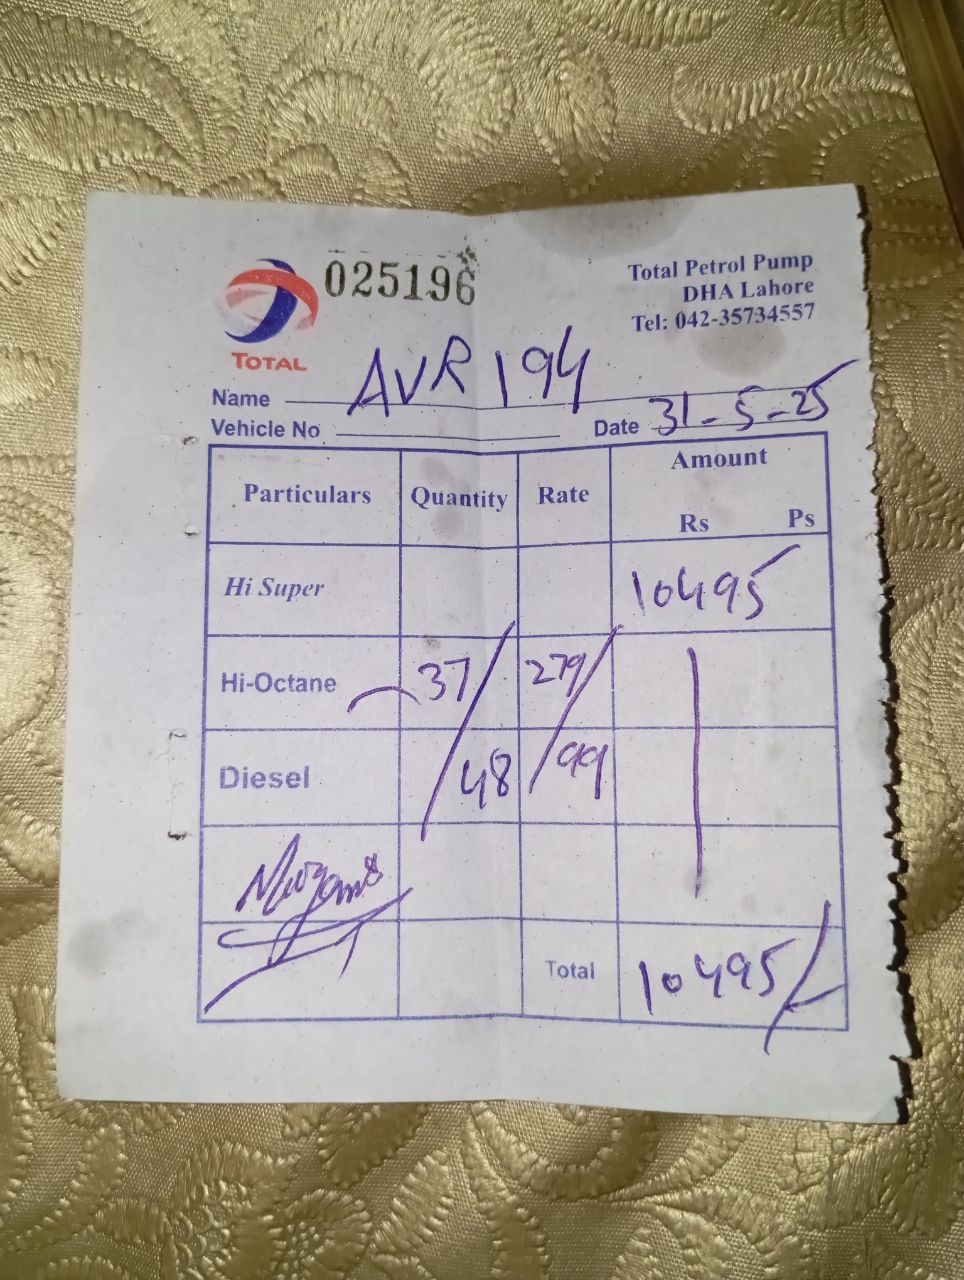 025196
TOTAL
Total Petrol Pump
DHA Lahore
Tel: 042-35734557
Name AVR 194
Vehicle No Date 31-5-25
Particulars Quantity Rate Amount
Rs Ps
Hi Super 10495
Hi-Octane 37/ 279/
Diesel 48 99
Total 10495/